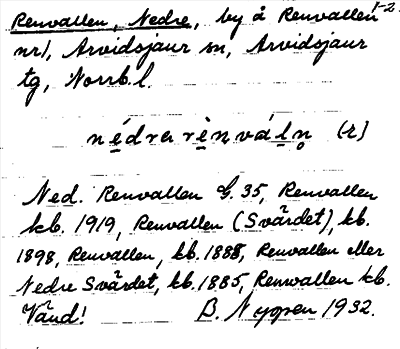 Renvallen, Nedre, by å Renvallen 1-2
nr1, Arvidsjaur sn, Arvidsjaur
tg, Norrb. l.
nédra rènválṇ (z)
Ned. Renvallen G. 35, Renvallen
kb. 1919, Renvallen (Svärdet), kb.
1898, Renvallen, kb. 1888, Renvallen eller
Nedre Svärdet, kb. 1885, Renvallen kb.
Vänd! B. Nyopen 1932.